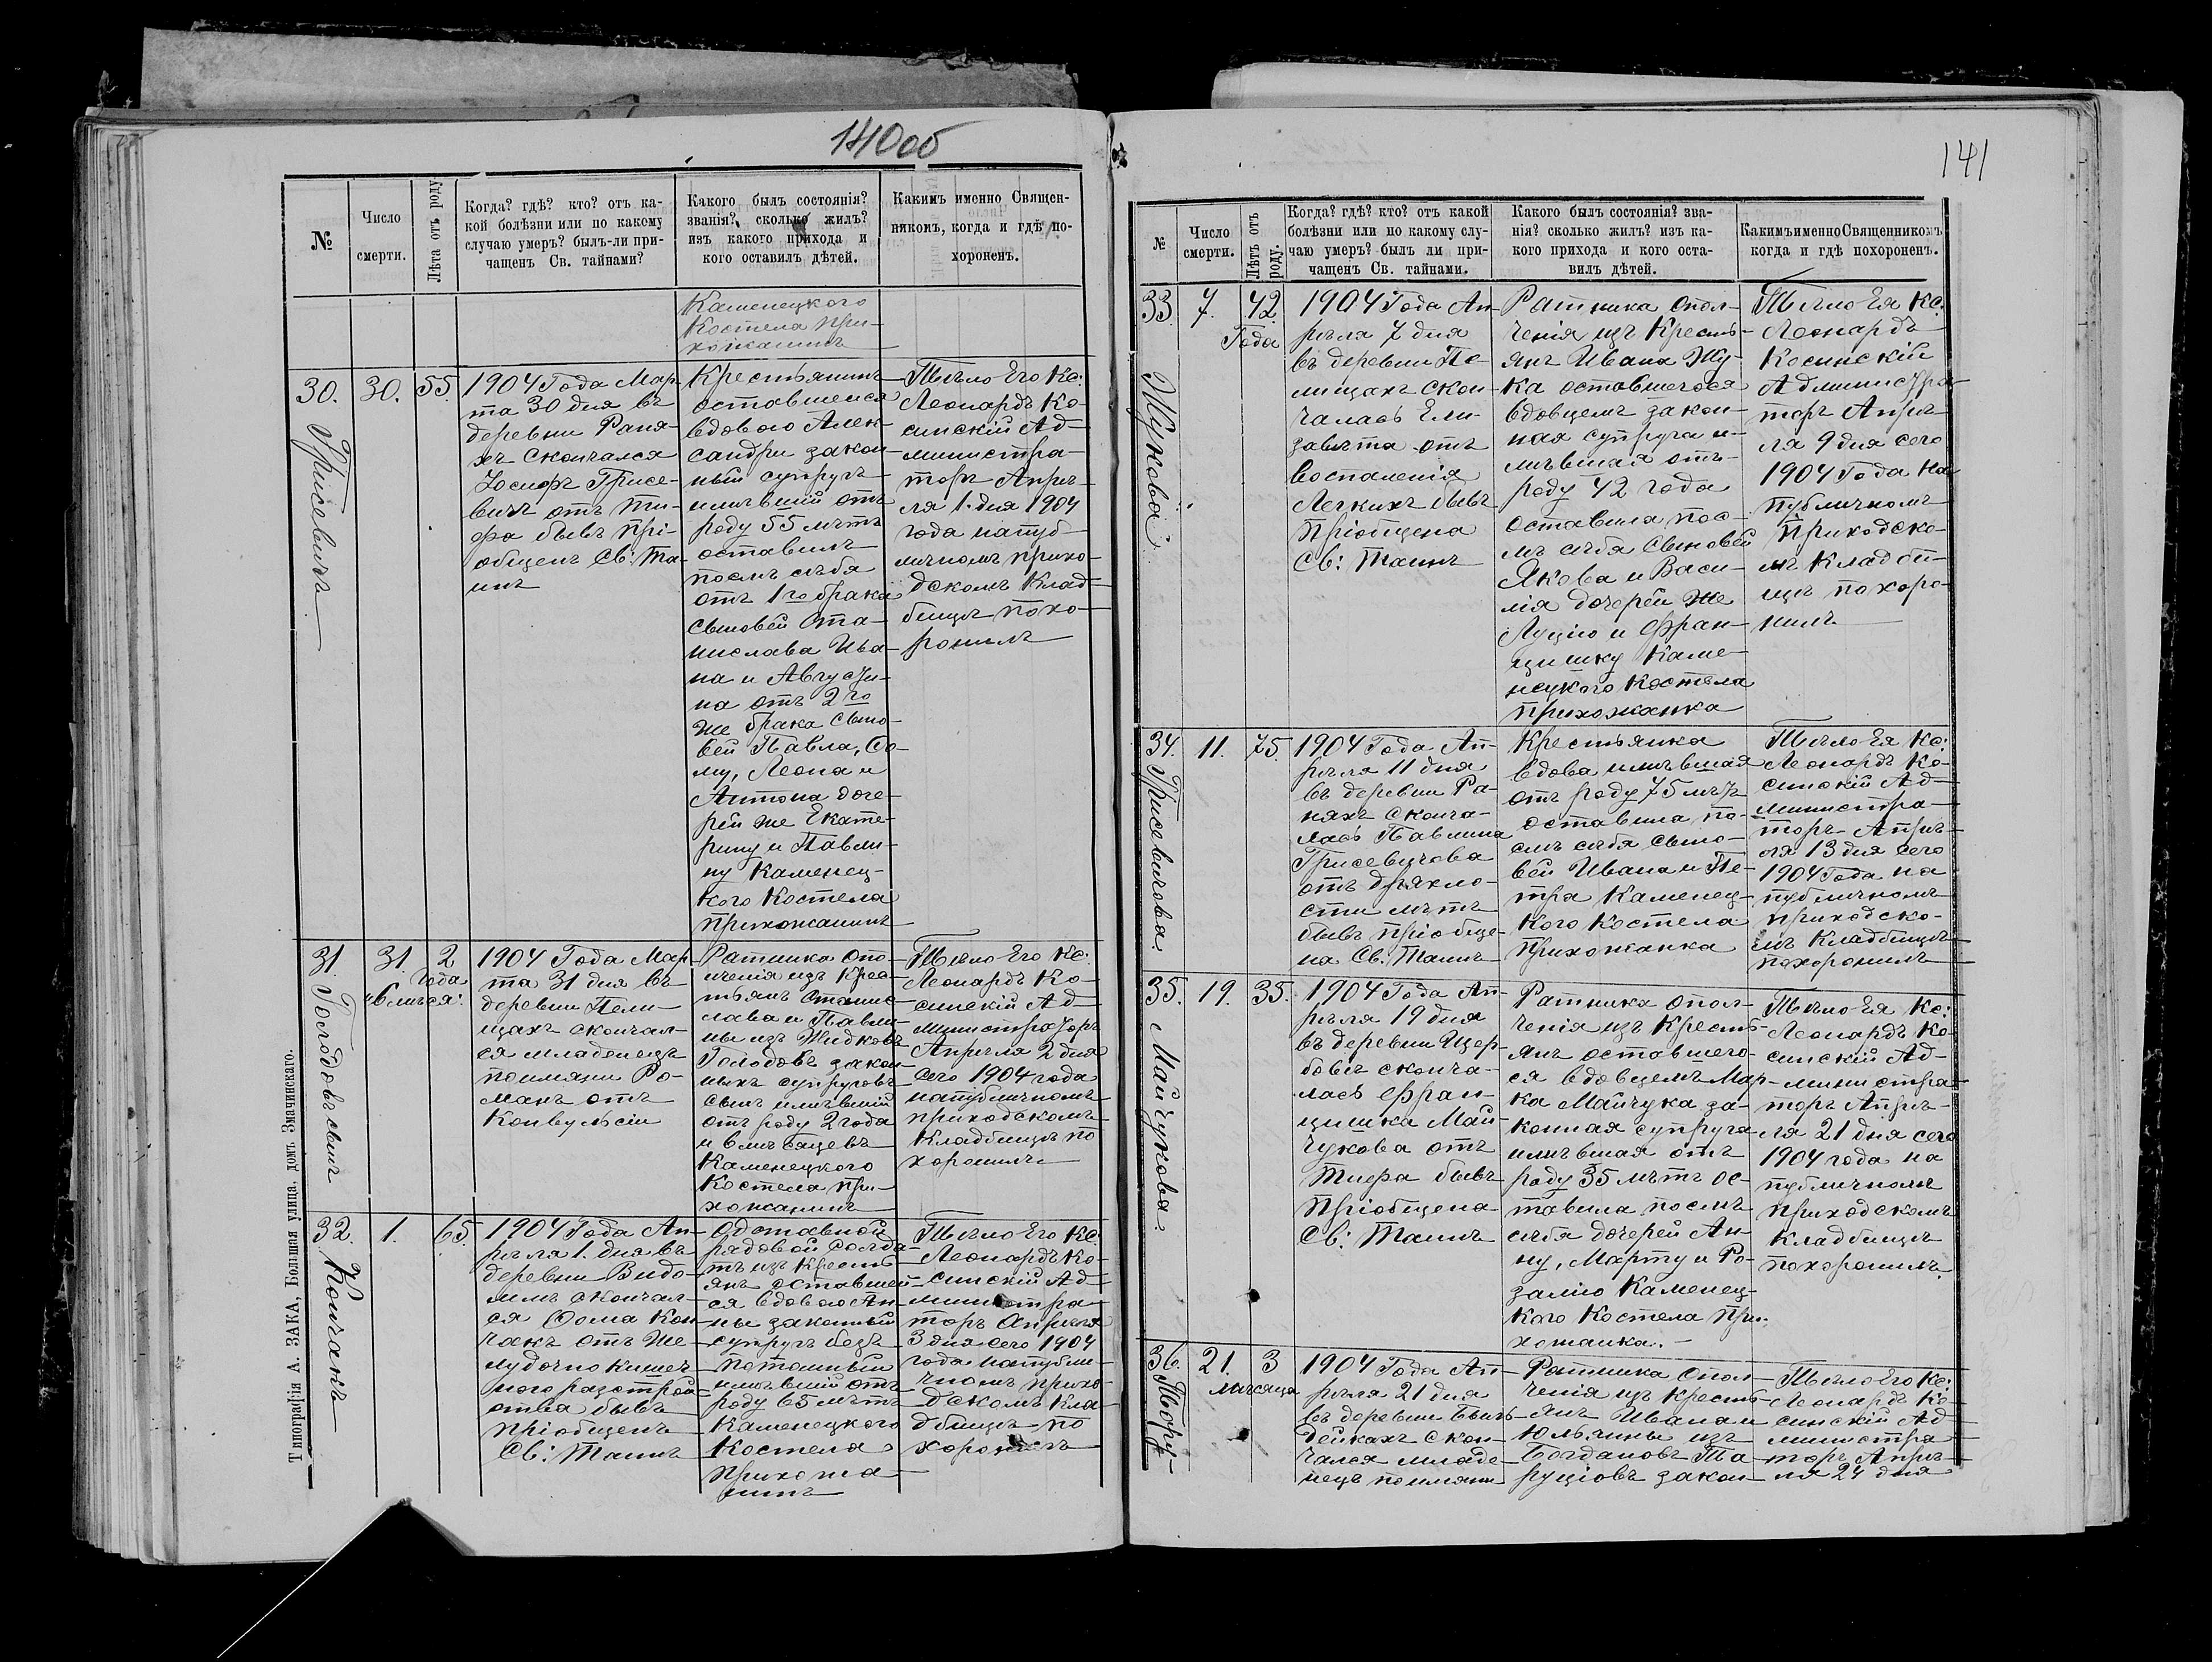 140об
№
Число
смерти.
Лѣта отъ роду.
Когда? гдѣ? кто? отъ ка-
кой болѣзни или по какому
случаю умеръ? былъ-ли при-
чащенъ Св. тайнами?
Какого былъ состоянія?
званія? сколько жилъ?
изъ какого прихода и
кого оставилъ дѣтей.
Какимъ именно Священ-
никомъ, когда и гдѣ по-
хороненъ.
Каменецкого
Костела при-
хожанинъ
30.
Грисевичъ
30.
55.
1904 Года Мар-
та 30 дня въ
деревни Раня-
хъ скончался
Іосифъ Грисе-
вичъ отъ ти-
фа бывъ прі-
общенъ Св: Та-
инъ
Крестьянинъ
оставшейся
вдовою Алек-
сандри закон-
ный супругъ
имѣвшій отъ
роду 55 лѣтъ
оставилъ
послѣ себя
отъ 1го брака
сыновей Ста-
нислава Ива-
на и Августи-
на отъ 2го
же брака сыно-
вей Павла, Фо-
му, Леона и
Антона доче-
рей же Екате-
рину и Павли-
ну Каменец-
кого Костела
прихожанинъ
Тѣло Его Кс:
Леонардъ Ко-
синскій Ад-
министра-
торъ Апрѣ-
ля 1 дня 1904
года на пуб-
личномъ прихо-
дскомъ Клад-
бищѣ похо-
ронилъ
31
Голодовъ сынъ
31
2
года
6 мѣсяц.
1904 Года Мар-
та 31 дня въ
деревни Пели-
щахъ скончал-
ся младенецъ
поимяни Ро-
манъ отъ
Конвульсіи
Ратника опо-
лченія изъ крес-
тьянъ Станис-
лава и Павли-
ны изъ Жидковъ
Голодовъ закон-
ныхъ супруговъ
сынъ имѣвшій
отъ роду 2 года
и 6 мѣсяцевъ
Каменецкого
Костела при-
хожанинъ
Тѣло Его Кс:
Леонардъ Ко-
синскій Ад-
министраторъ
Апрѣля 2 дня
сего 1904 года
на публичномъ
приходскомъ
Кладбищѣ по
хоронилъ
32.
Кончакъ
1.
65.
1904 Года Ап-
рѣля 1. дня въ
деревни Видо-
млѣ скончал-
ся Фома Кон-
чакъ отъ же-
лудочно кишеч-
ного разстрой-
ства бывъ
пріобщенъ
Св: Таинъ
Отставной
рядовой солда-
тъ изъ кресть-
янъ оставшей-
ся вдовою Ан-
ны законный
супругъ безъ
потомный
имѣвшій отъ
роду 65 лѣтъ
Каменецкого
Костела
прихожа-
нинъ
Тѣло Его Кс:
Леонардъ Ко-
синскій Ад-
министра-
торъ Апрѣля
3 дня сего 1904
года на публи-
чномъ прихо-
дскомъ Кла-
дбищѣ по
хоронилъ
Типографія А. ЗАКА, Большая улица, домъ Змачинскаго.
141
№
Число
смерти.
Лѣтъ отъ
роду.
Когда? гдѣ? кто? отъ какой
болѣзни или по какому слу-
чаю умеръ? былъ ли при-
чащенъ Св. тайнами.
Какого былъ состоянія? зва-
нія? сколько жилъ? изъ ка-
кого прихода и кого оста-
вилъ дѣтей.
Какимъ именно Священникомъ
когда и гдѣ похороненъ.
33.
Жукова
7.
42.
Года
1904 Года Ап-
рѣля 7 дня
въ деревни Пе-
лищахъ скон-
чалась Ели-
завѣта отъ
воспаленія
Легкихъ бывъ
пріобщена
Св: Таинъ
Ратника опол-
ченія изъ Кресть-
янъ Ивана Жу-
ка оставшегося
вдовцемъ закон-
ная супруга и-
мѣвшая отъ
роду 42 года
оставила пос-
лѣ себя сыновей
Якова и Васи-
лія дочерей же
Луцію и Фран-
цишку Каме-
нецкого Костела
прихожанка
Тѣло Ея Кс.
Леонардъ
Косинскій
Администра-
торъ Апрѣ-
ля 9 дня сего
1904 Года на
публичномъ
приходско-
мъ Кладби-
щѣ похоро-
нилъ
34.
Грисевичова.
11.
75.
1904 Года Ап-
рѣля 11 дня
въ деревни Ра-
няхъ сконча-
лась Павлина
Грисевичова
отъ дряхло-
сти лѣтъ
бывъ пріобще-
на Св: Таинъ
Крестьянка
вдова имѣвшая
отъ роду 75 лѣтъ
оставила по-
слѣ себя сыно-
вей Ивана и Пе-
тра Каменец-
кого Костела
прихожанка
Тѣло Ея Кс:
Леонардъ Ко-
синскій Ад-
министра-
торъ Апрѣ-
ля 13 дня сего
1904 Года на
публичномъ
приходско-
мъ Кладбищѣ
похоронилъ
35.
Майчукова.
19.
35.
1904 Года Ап-
рѣля 19 дня
въ деревни Щер-
бове сконча-
лась Фран-
цишка Май-
чукова отъ
Тифа бывъ
пріобщена
Св: Таинъ
Ратника опол-
ченія изъ Кресть-
янъ оставшего-
ся вдовцемъ Мар-
ка Майчука за-
конная супруга
имѣвшая отъ
роду 35 лѣтъ ос-
тавила послѣ
себя дочерей Ан-
ну, Марту и Ро-
залію Каменец-
кого Костела при-
хожанка.
Тѣло Ея Кс:
Леонардъ Ко-
синскій Ад-
министра-
торъ Апрѣ-
ля 21 дня сего
1904 года на
публичномъ
приходскомъ
Кладбищѣ
похоронилъ.
36.
21.
3
мѣсяца
1904 Года Ап-
рѣля 21 дня
въ деревни
скон-
чался младе-
нецъ поимяни
Ратника опол-
ченія изъ кресть-
янъ Ивана и
Юльяны изъ
Богдановъ Та-
руціовъ закон-
Тѣло Его Кс:
Леонардъ Ко-
синскій Ад-
министра-
торъ Апрѣ-
ля 24 дня